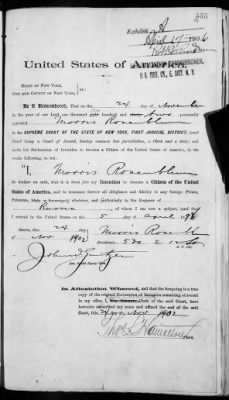 Exhibit A
April 17 1906
United States of America.
STATE OF NEW YORK,
CITY AND COUNTY OF NEW YORK,
Be it Remembered, That on the 24 day of November
in the year of our Lord one thousand hundred and two personally
appeared Morris Rosenblum
in the SUPREME COURT OF THE STATE OF NEW YORK, FIRST JUDICIAL DISTRICT, (said
Court being a Court of Record, having common law jurisdiction, a Clerk and a Seal,) and
made his Declaration of Intention to become a Citizen of the United States of America, in the
words following, to wit:
I, Morris Rosenblum
do declare on oath, that it is bona fide my intention to become a Citizen of the United
States of America, and to renounce forever all allegiance and fidelity to any foreign Prince,
Potentate, State or Sovereignty whatever, and particularly to the Emperor of
Russia of whom I am now a subject, (and that
I arrived in the United States on the 5 day of April
Sworn, this 24 day
of Nov 1902
In Attestation Whereof, and that the foregoing is a true
copy of the original Declaration of Intention remaining of record
in my office, I, Clerk of the said Court, have
hereunto subscribed my name and affixed the seal of the said
Court, this 24 day of Nov 1902
Thos L Hamilton